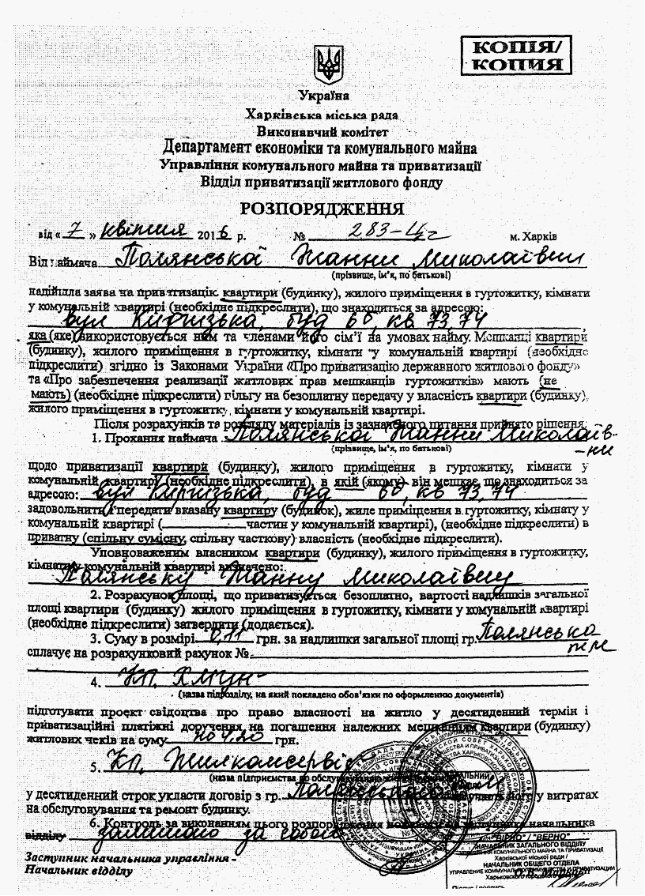 КОПІЯ/
КОПИЯ
Україна
Харківська міська рада
Виконавчий комітет
Департамент економіки та комунального майна
Управління комунального майна та приватизації
Відділ приватизації житлового фонду
РОЗПОРЯДЖЕННЯ
від « 7 » квітня 2016 р. № 283-16/г м. Харків
Від наймача Полянської Жанни Миколаївни
(прізвище, ім'я, по батькові)
надійшла заява на приватизацію квартири (будинку), жилого приміщення в гуртожитку, кімнати
у комунальній квартирі (необхідне підкреслити), що знаходиться за адресою:
вул Киргизька, буд 60, кв 73, 74
яка (яке) використовується ним та членами його сім'ї на умовах найму. Мешканці квартири
(будинку), жилого приміщення в гуртожитку, кімнати у комунальній квартирі (необхідне
підкреслити) згідно із Законами України «Про приватизацію державного житлового фонду»
та «Про забезпечення реалізації житлових прав мешканців гуртожитків» мають (не
мають) (необхідне підкреслити) пільгу на безоплатну передачу у власність квартири (будинку),
жилого приміщення в гуртожитку, кімнати у комунальній квартирі.
Після розрахунків та розгляду матеріалів із зазначеного питання прийнято рішення:
1. Прохання наймача Полянської Жанни Миколаїв-
ни
(прізвище, ім'я, по батькові)
щодо приватизації квартири (будинку), жилого приміщення в гуртожитку, кімнати у
комунальній квартирі (необхідне підкреслити), в якій (якому) він мешкає, що знаходиться за
адресою: вул Киргизька, буд 60, кв 73, 74
задовольнити і передати вказану квартиру (будинок), жиле приміщення в гуртожитку, кімнату у
комунальній квартирі ( частин у комунальній квартирі), (необхідне підкреслити) в
приватну (спільну сумісну, спільну часткову) власність (необхідне підкреслити).
Уповноваженим власником квартири (будинку), жилого приміщення в гуртожитку,
кімнати у комунальній квартирі визначено:
Полянську Жанну Миколаївну
2. Розрахунок площі, що приватизується безоплатно, вартості надлишків загальної
площі квартири (будинку) жилого приміщення в гуртожитку, кімнати у комунальній квартирі
(необхідне підкреслити) затвердити (додається).
3. Суму в розмірі 0,11 грн. за надлишки загальної площі гр. Полянська
сплачує на розрахунковий рахунок №
4. КП
(назва підрозділу, на який покладено обов'язки по оформленню документів)
підготувати проект свідоцтва про право власності на житло у десятиденний термін і
приватизаційні платіжні доручення на погашення належних мешканцям квартири (будинку)
житлових чеків на суму грн.
5. КП Жилкомсервіс
(назва підприємства по обслуговуванню
у десятиденний строк укласти договір з гр. у витратах
на обслуговування та ремонт будинку.
6. Контроль за виконанням цього розпорядження начальника
відділу залишаю за собою
Заступник начальника управління -
Начальник відділу
"ВІРНО" / "ВЕРНО"
НАЧАЛЬНИК ЗАГАЛЬНОГО ВІДДІЛУ
Харківської міської ради /
НАЧАЛЬНИК ОБЩЕГО ОТДЕЛА